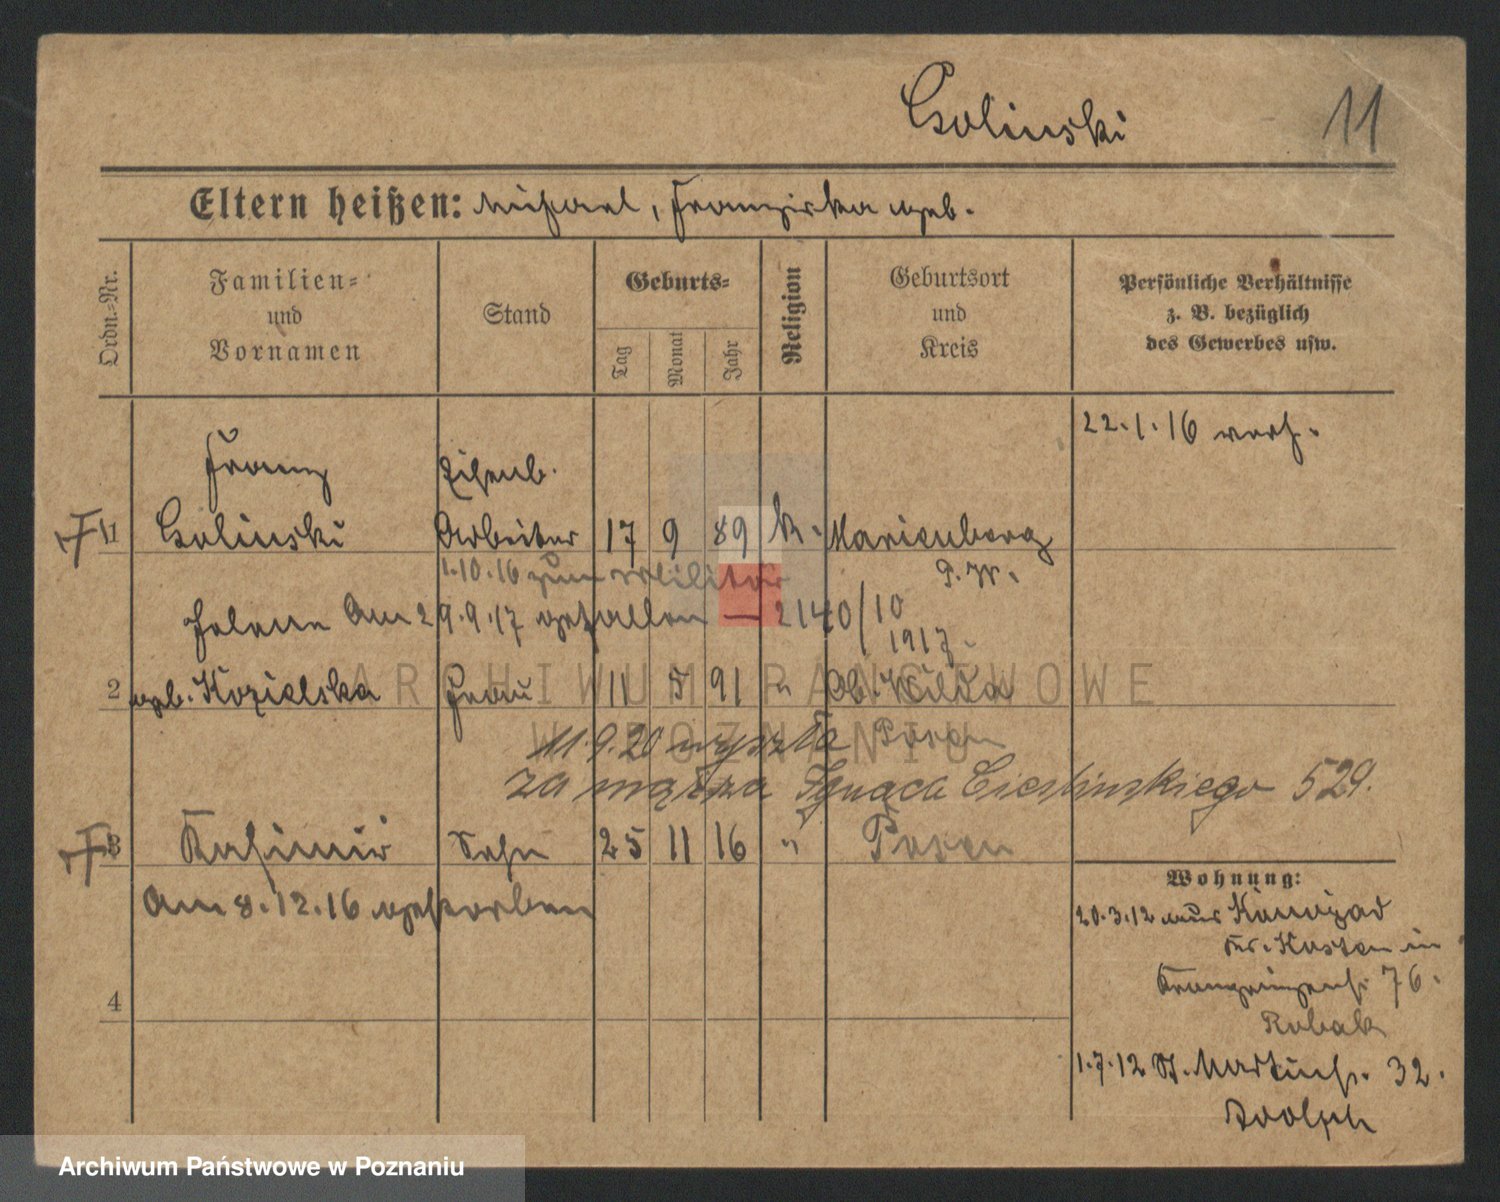 Golinski
11
Eltern heißen: Michael, Franziska geb.
Ordn.-Nr.
Familien-
und
Vornamen
Stand
Geburts-
Tag
Monat
Jahr
Religion
Geburtsort
und
Kreis
Persönliche Verhältnisse
z. B. bezüglich
des Gewerbes usw.
22.1.16 verh.
Franz
Eisenb.
1 Golinski Arbeiter 17 9 89 k. Marienberg
1.10.16 zum Militär P. W.
Helene Am 29.9.17 gefallen — 2140/10
1917.
2 geb. Kozielska Frau 11 5 91 " Ob. Wilda
11.9.20 wyszła Posen
za męża Ignaca Cieslinskiego 529.
3 Kasimir Sohn 25 11 16 " Posen
Am 8.12.16 gestorben
4
Wohnung:
20.3.12 aus
Kr. Kosten in
Kronprinzenstr. 76.
Robak
1.7.12 St. Martinstr. 32.
Adolph
ARCHIWUM PAŃSTWOWE
W POZNANIU
Archiwum Państwowe w Poznaniu